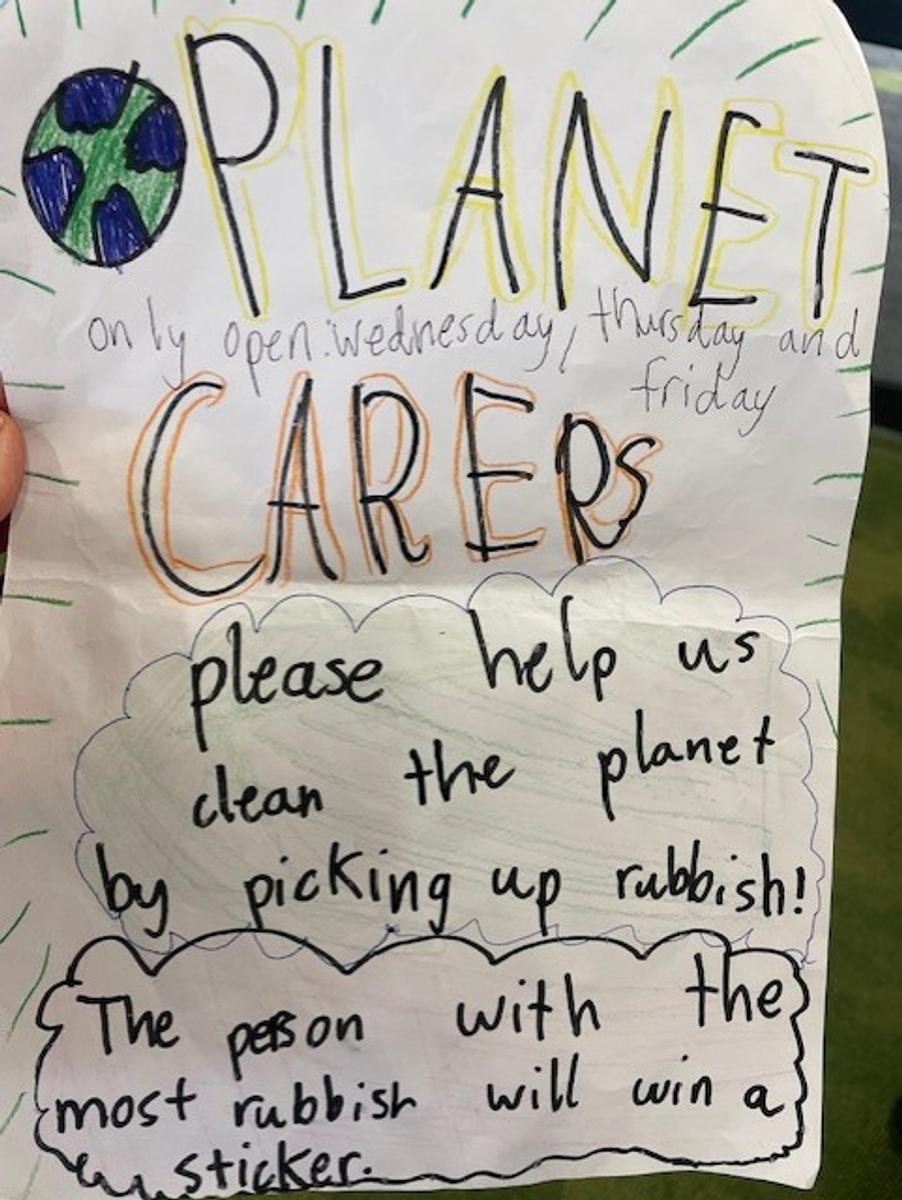 PLANET
only open: wednesday, thursday and
friday
CARERS
please help us
clean the planet
by picking up rubbish!
The person with the
most rubbish will win a
sticker.